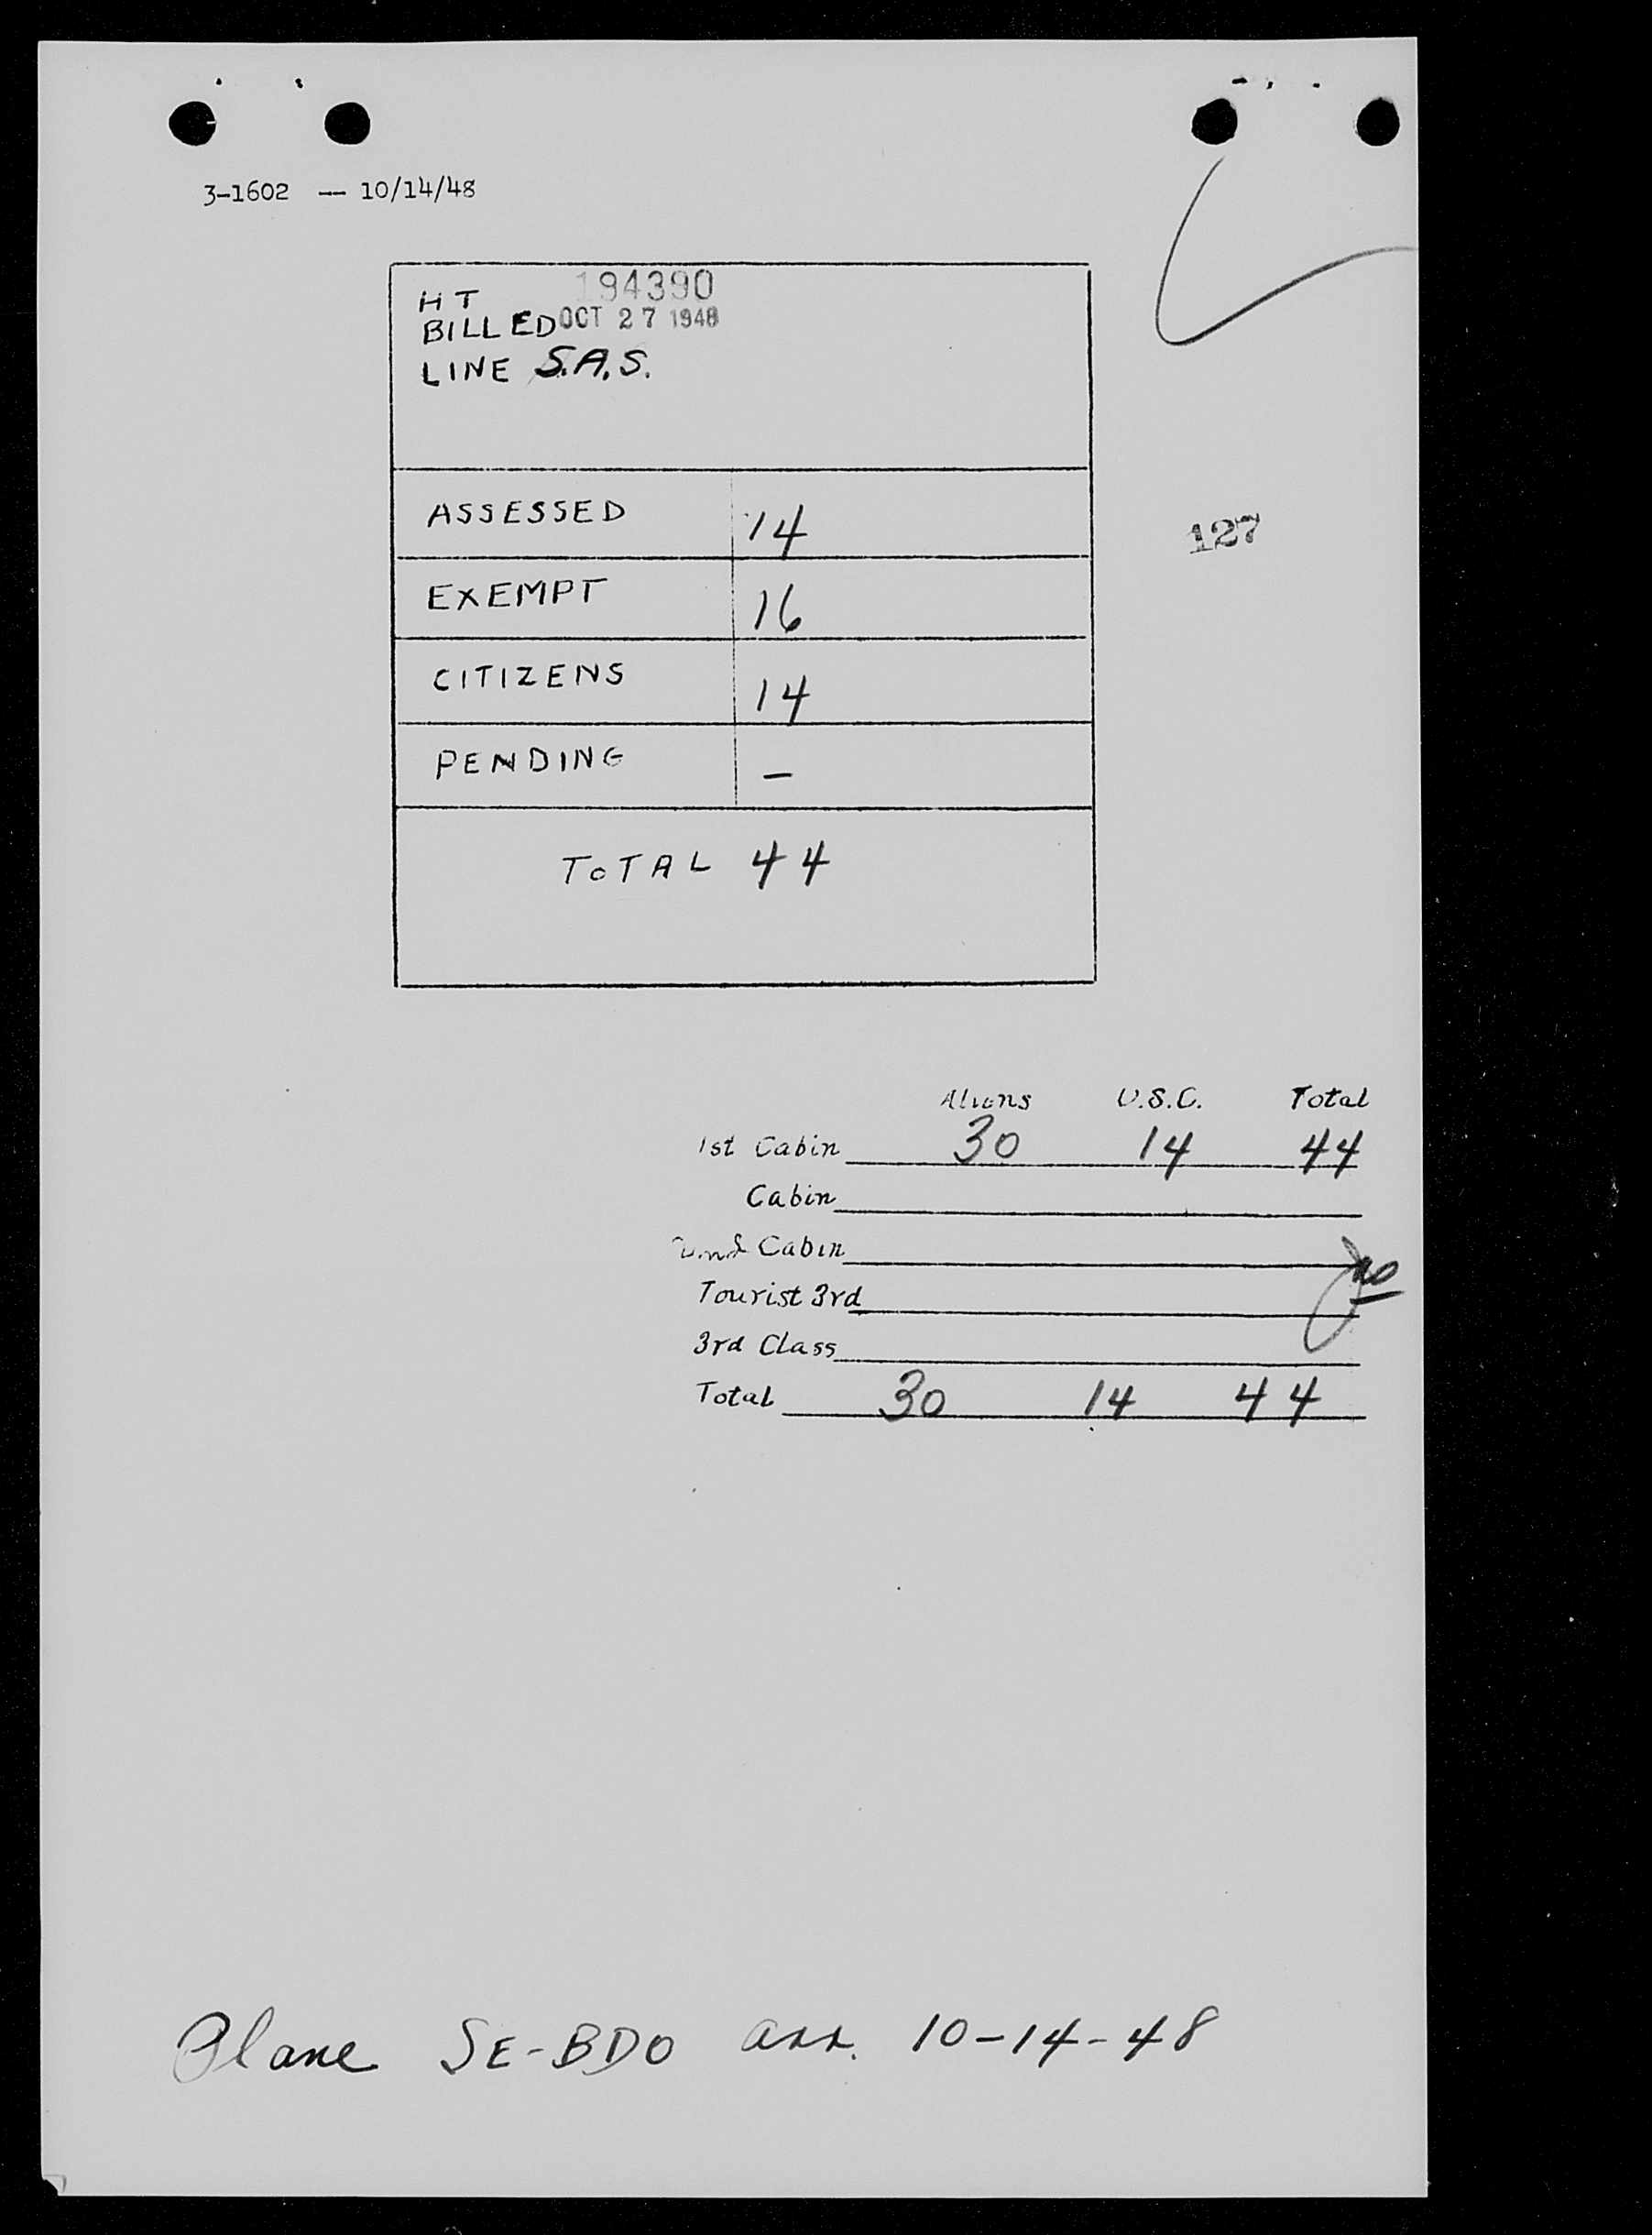 3-1602 — 10/14/48
HT 194390
BILLED OCT 27 1948
LINE S.A.S.
ASSESSED 14
127
EXEMPT 16
CITIZENS 14
PENDING –
TOTAL 44
Aliens U.S.C. Total
1st Cabin 30 14 44
Cabin
Cabin
Tourist 3rd
3rd Class
Total 30 14 44
Plane SE-BDO arr. 10-14-48